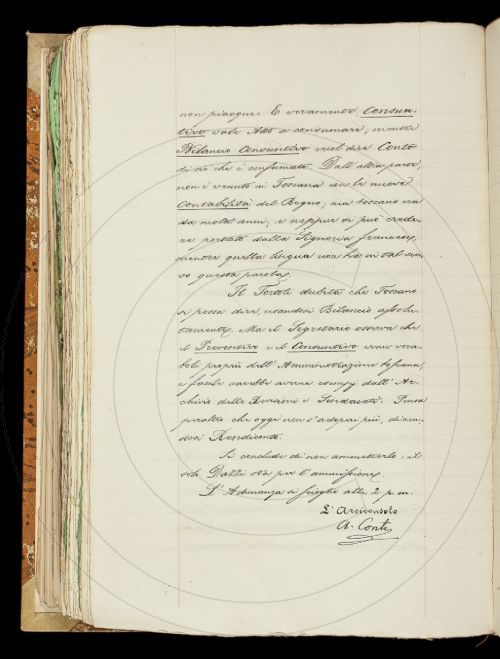 non piacque. E veramente Consun-
tivo vale Atto a consumare; mentre
Bilancio Consuntivo vuol dire Conto
di ciò che è consumato. Dall'altra parte
non è venuto in Toscana con le nuove
Contabilità del Regno, ma toscano era
da molti anni, e neppur si può crede-
re portato dalla Signoria francese,
mentre quella lingua non ha in tal sen-
so questa parola.
Il Tortoli dubita che Toscano
si possa dire, usandosi Bilancio assolu-
tamente. Ma il Segretario osserva che
il Preventivo e il Consuntivo eran voca-
boli proprii dell'Amministrazione toscana,
e facile sarebbe averne esempj dall'Ar-
chivio delle Revisioni e Sindacati. Pensa
peraltro che oggi non s'adoperi più, dicen-
dosi Rendiconto.
Si conclude di non ammetterlo: il
solo Dazzi sta per l'ammissione.
L'Adunanza si scioglie alle 2 p. m.
L'Arciconsolo
A. Conti